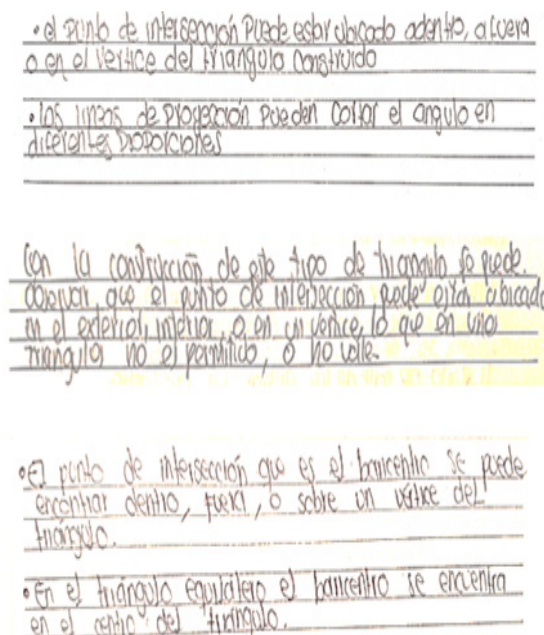 • el punto de intersección Puede estar ubicado adentro, afuera
o en el vertice del triangulo construido
• las lineas de proyección pueden cortar el angulo en
diferentes proporciones
Con la construcción de este tipo de triangulo se puede
observar que el punto de intersección puede estar ubicado
en el exterior, interior, o en un vertice, lo que en
triangulo no es permitido, o no
• El punto de intersección que es el baricentro se puede
encontrar dentro, fuera, o sobre un vértice del
triángulo.
• En el triángulo equilátero el baricentro se encuentra
en el centro del triángulo.